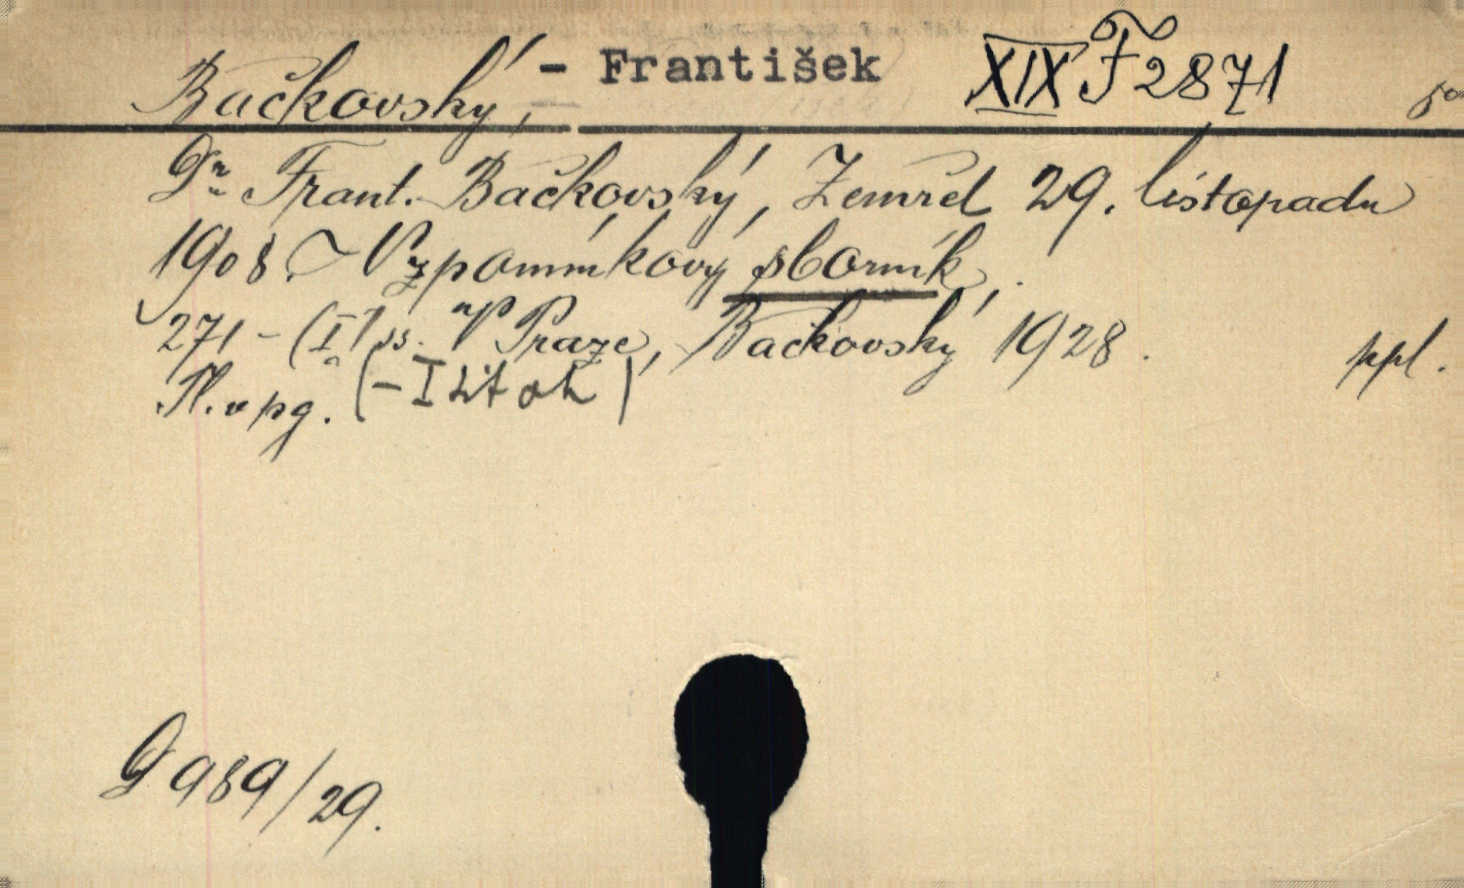 Bačkovský, - František XIX F 2871
Dr. Frant. Bačkovský, Zemřel 29. listopadu
1908. Vzpomínkový sborník,
271 - (I) ss. V Praze, Bačkovský 1928. ppl.
(- I lit ob)
D 989/29.